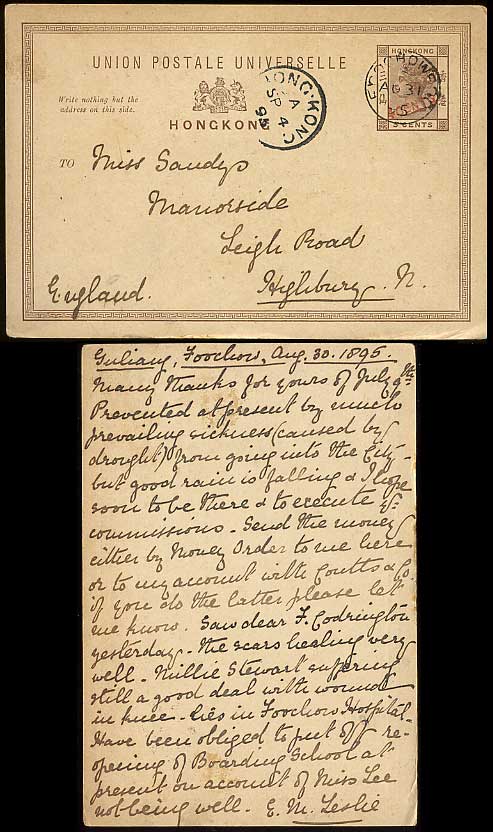 UNION POSTALE UNIVERSELLE
Write nothing but the
address on this side.
HONGKONG
HONGKONG
5 CENTS
FOOCHOW
AU 31
95
HONG-KONG
A
SP 4
95
TO Miss Sandys
Manorside
Leigh Road
Highbury. N.
England.
Guliang, Foochow, Aug. 30. 1895.
Many thanks for yours of July 9th.
Prevented at present by much
prevailing sickness (caused by
drought) from going into the City -
but good rain is falling & I hope
soon to be there & to execute yr.
commissions - Send the money
either by Money Order to me here
or to my account with Coutts & Co.
if you do the latter please let
me know. Saw dear F. Codrington
yesterday - the scars healing very
well - Millie Stewart suffering
still a good deal with wound
in knee - lies in Foochow Hospital -
Have been obliged to put off re-
opening of Boarding School at
present on account of Miss Lee
not being well - E. M. Leslie